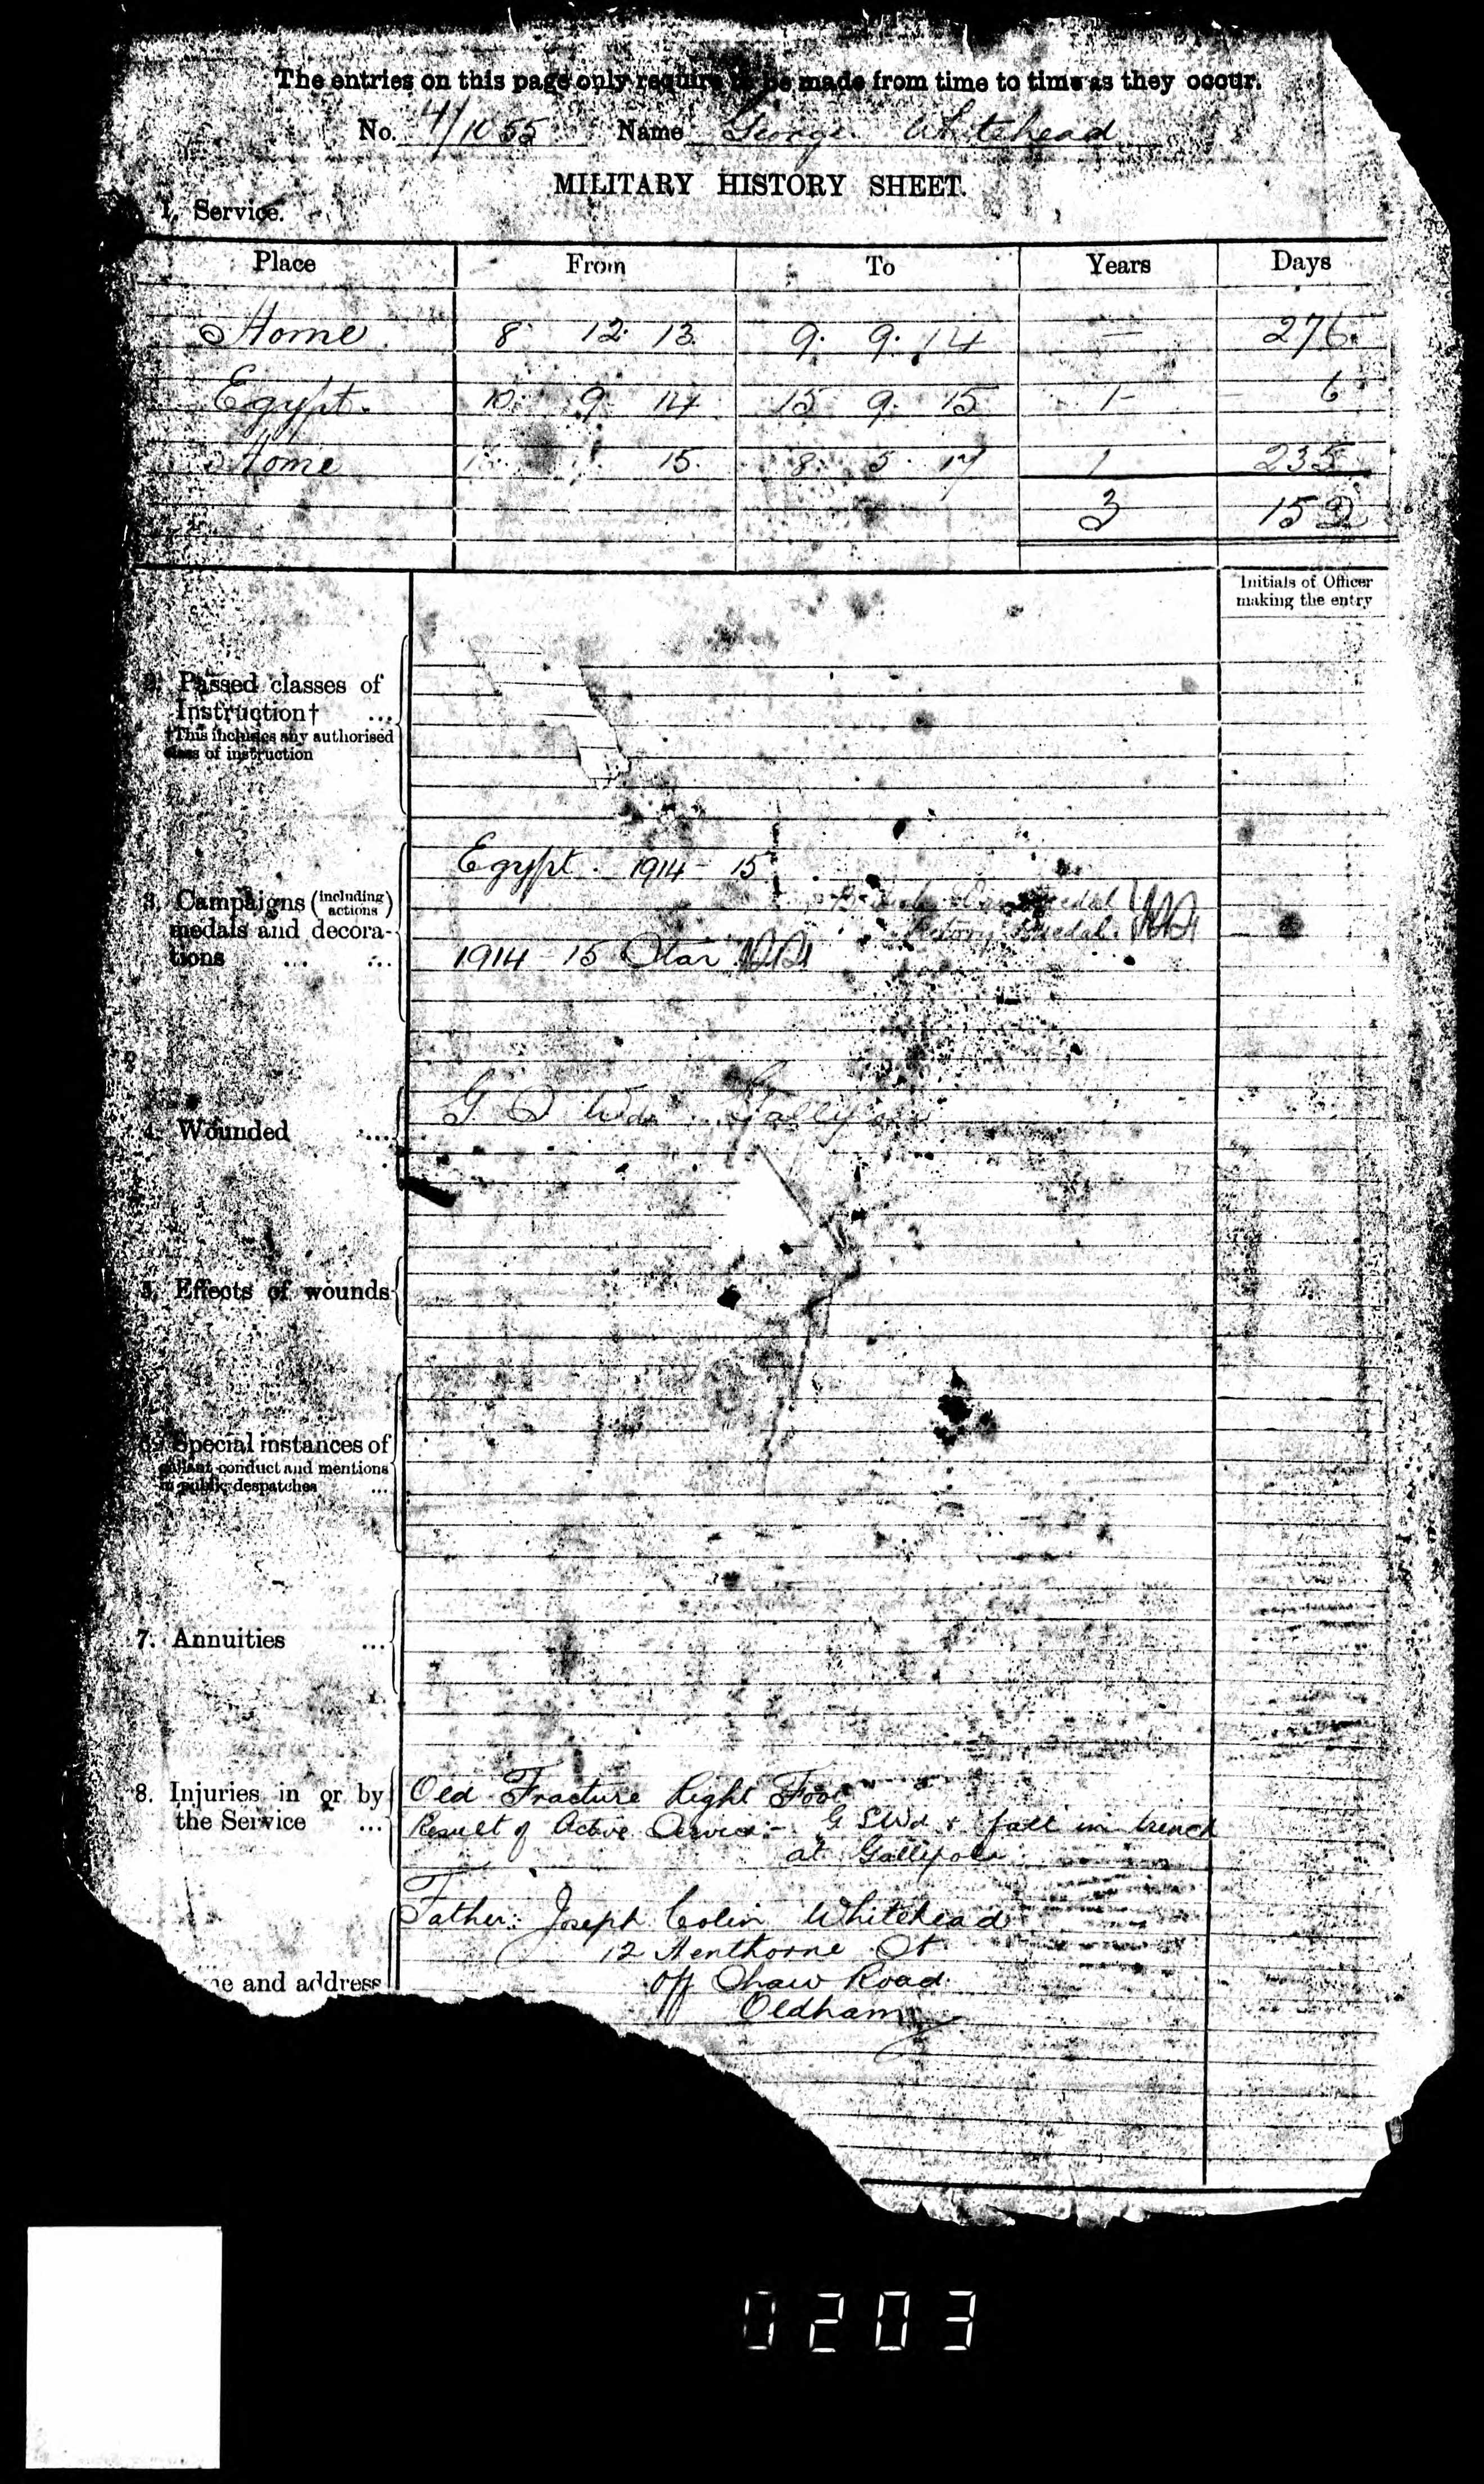 The entries on this page only require to be made from time to time as they occur.
No. 4/1055 Name George Whitehead
MILITARY HISTORY SHEET.
1. Service.
Place From To Years Days
Home 8 12 13 9. 9. 14 — 276
Egypt. 10. 9 14 15 9. 15 1 - 6
Home 15 8 5 17 1 235
3 152
Initials of Officer
making the entry
2. Passed classes of
Instruction† ...
†This includes any authorised
class of instruction
Egypt. 1914 - 15
3. Campaigns (including
actions)
medals and decora-
tions ... ...
British War Medal
Victory Medal.
1914 - 15 Star
4. Wounded ...
G S Wd. Gallipoli
5. Effects of wounds
6. Special instances of
gallant conduct and mentions
in public despatches ...
7. Annuities ...
8. Injuries in or by
the Service ...
Old Fracture Right Foot
Result of Active Service:- G S Wd & fall in trench
at Gallipoli
Father: Joseph Colin Whitehead
12 Henthorne St
and address
off Shaw Road
Oldham
0203